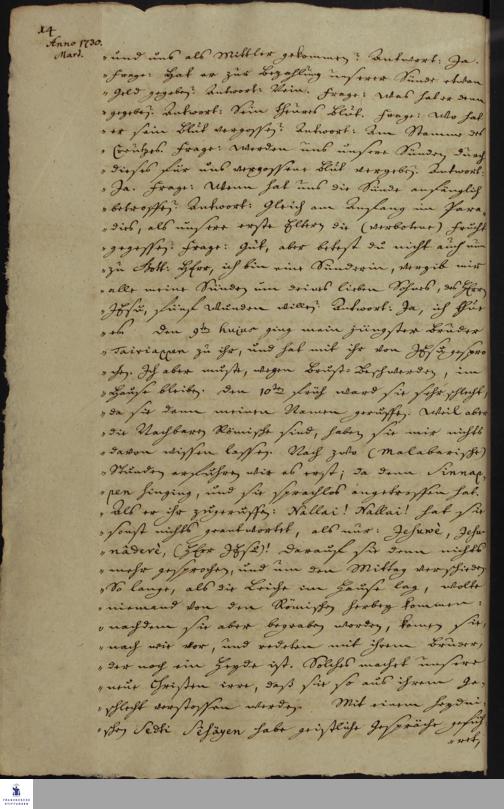 14
Anno 1730.
Mart.
„und uns als Mittler gekommen? Antwort: Ja.
„Frage: Hat er zur Bezahlung unserer Sünde etwan
„Geld gegeben? Antwort: Nein. Frage: Was hat er denn
„gegeben? Antwort: Sein theures Blut. Frage: Wo hat
„er sein Blut vergossen? Antwort: Am Stamme des
„Creutzes. Frage: Werden uns unsere Sünden durch
„dieses für uns vergossene Blut vergeben? Antwort:
„Ja. Frage: Wenn hat uns die Sünde anfänglich
„betroffen? Antwort: Gleich am Anfang im Para-
„dies, als unsere erste Eltern die (verbotene) Frucht
„gegessen. Frage: Gut, aber betest du nicht auch nun
„zu Gott: HErr, ich bin eine Sünderin, vergib mir
„alle meine Sünden um deines lieben Sohnes, des HErrn
„JEsu, fünf Wunden willen? Antwort: Ja, ich thue
„es. Den 9ten hujus ging mein jüngster Bruder
„Tairiappen zu ihr, und hat mit ihr von JEsu gespro-
„chen. Ich aber muste, wegen Brust-Beschwerden, im
„Hause bleiben. Den 10ten früh ward sie sehr schlecht,
„da sie denn meinen Namen geruffen. Weil aber
„die Nachbaren Römische sind, haben sie mir nichts
„davon wissen lassen. Nach zwo (Malabarische)
„Stunden erfuhren wir es erst; da denn Sinnap-
„pen hinging, und sie sprachlos angetroffen hat.
„Als er ihr zugeruffen: Nallai! Nallai! hat sie
„sonst nichts geantwortet, als nur: Jesuwe, Jesu-
„nadere, (HErr JEsu)! Darauf sie denn nichts
„mehr gesprochen, und um den Mittag verschieden.
„So lange, als die Leiche im Hause lag, wolte
„niemand von den Römischen herbey kommen:
„nachdem sie aber begraben worden, kamen sie,
„nach wie vor, und redeten mit ihrem Bruder,
„der noch ein Heyde ist. Solches machet unsere
„neue Christen irre, daß sie so aus ihrem Ge-
„schlecht verstossen werden. Mit einem heydni-
„schen Sedti Schäyen habe geistliche Gespräche gefüh-
„ret,
FRANCKESCHE
STIFTUNGEN